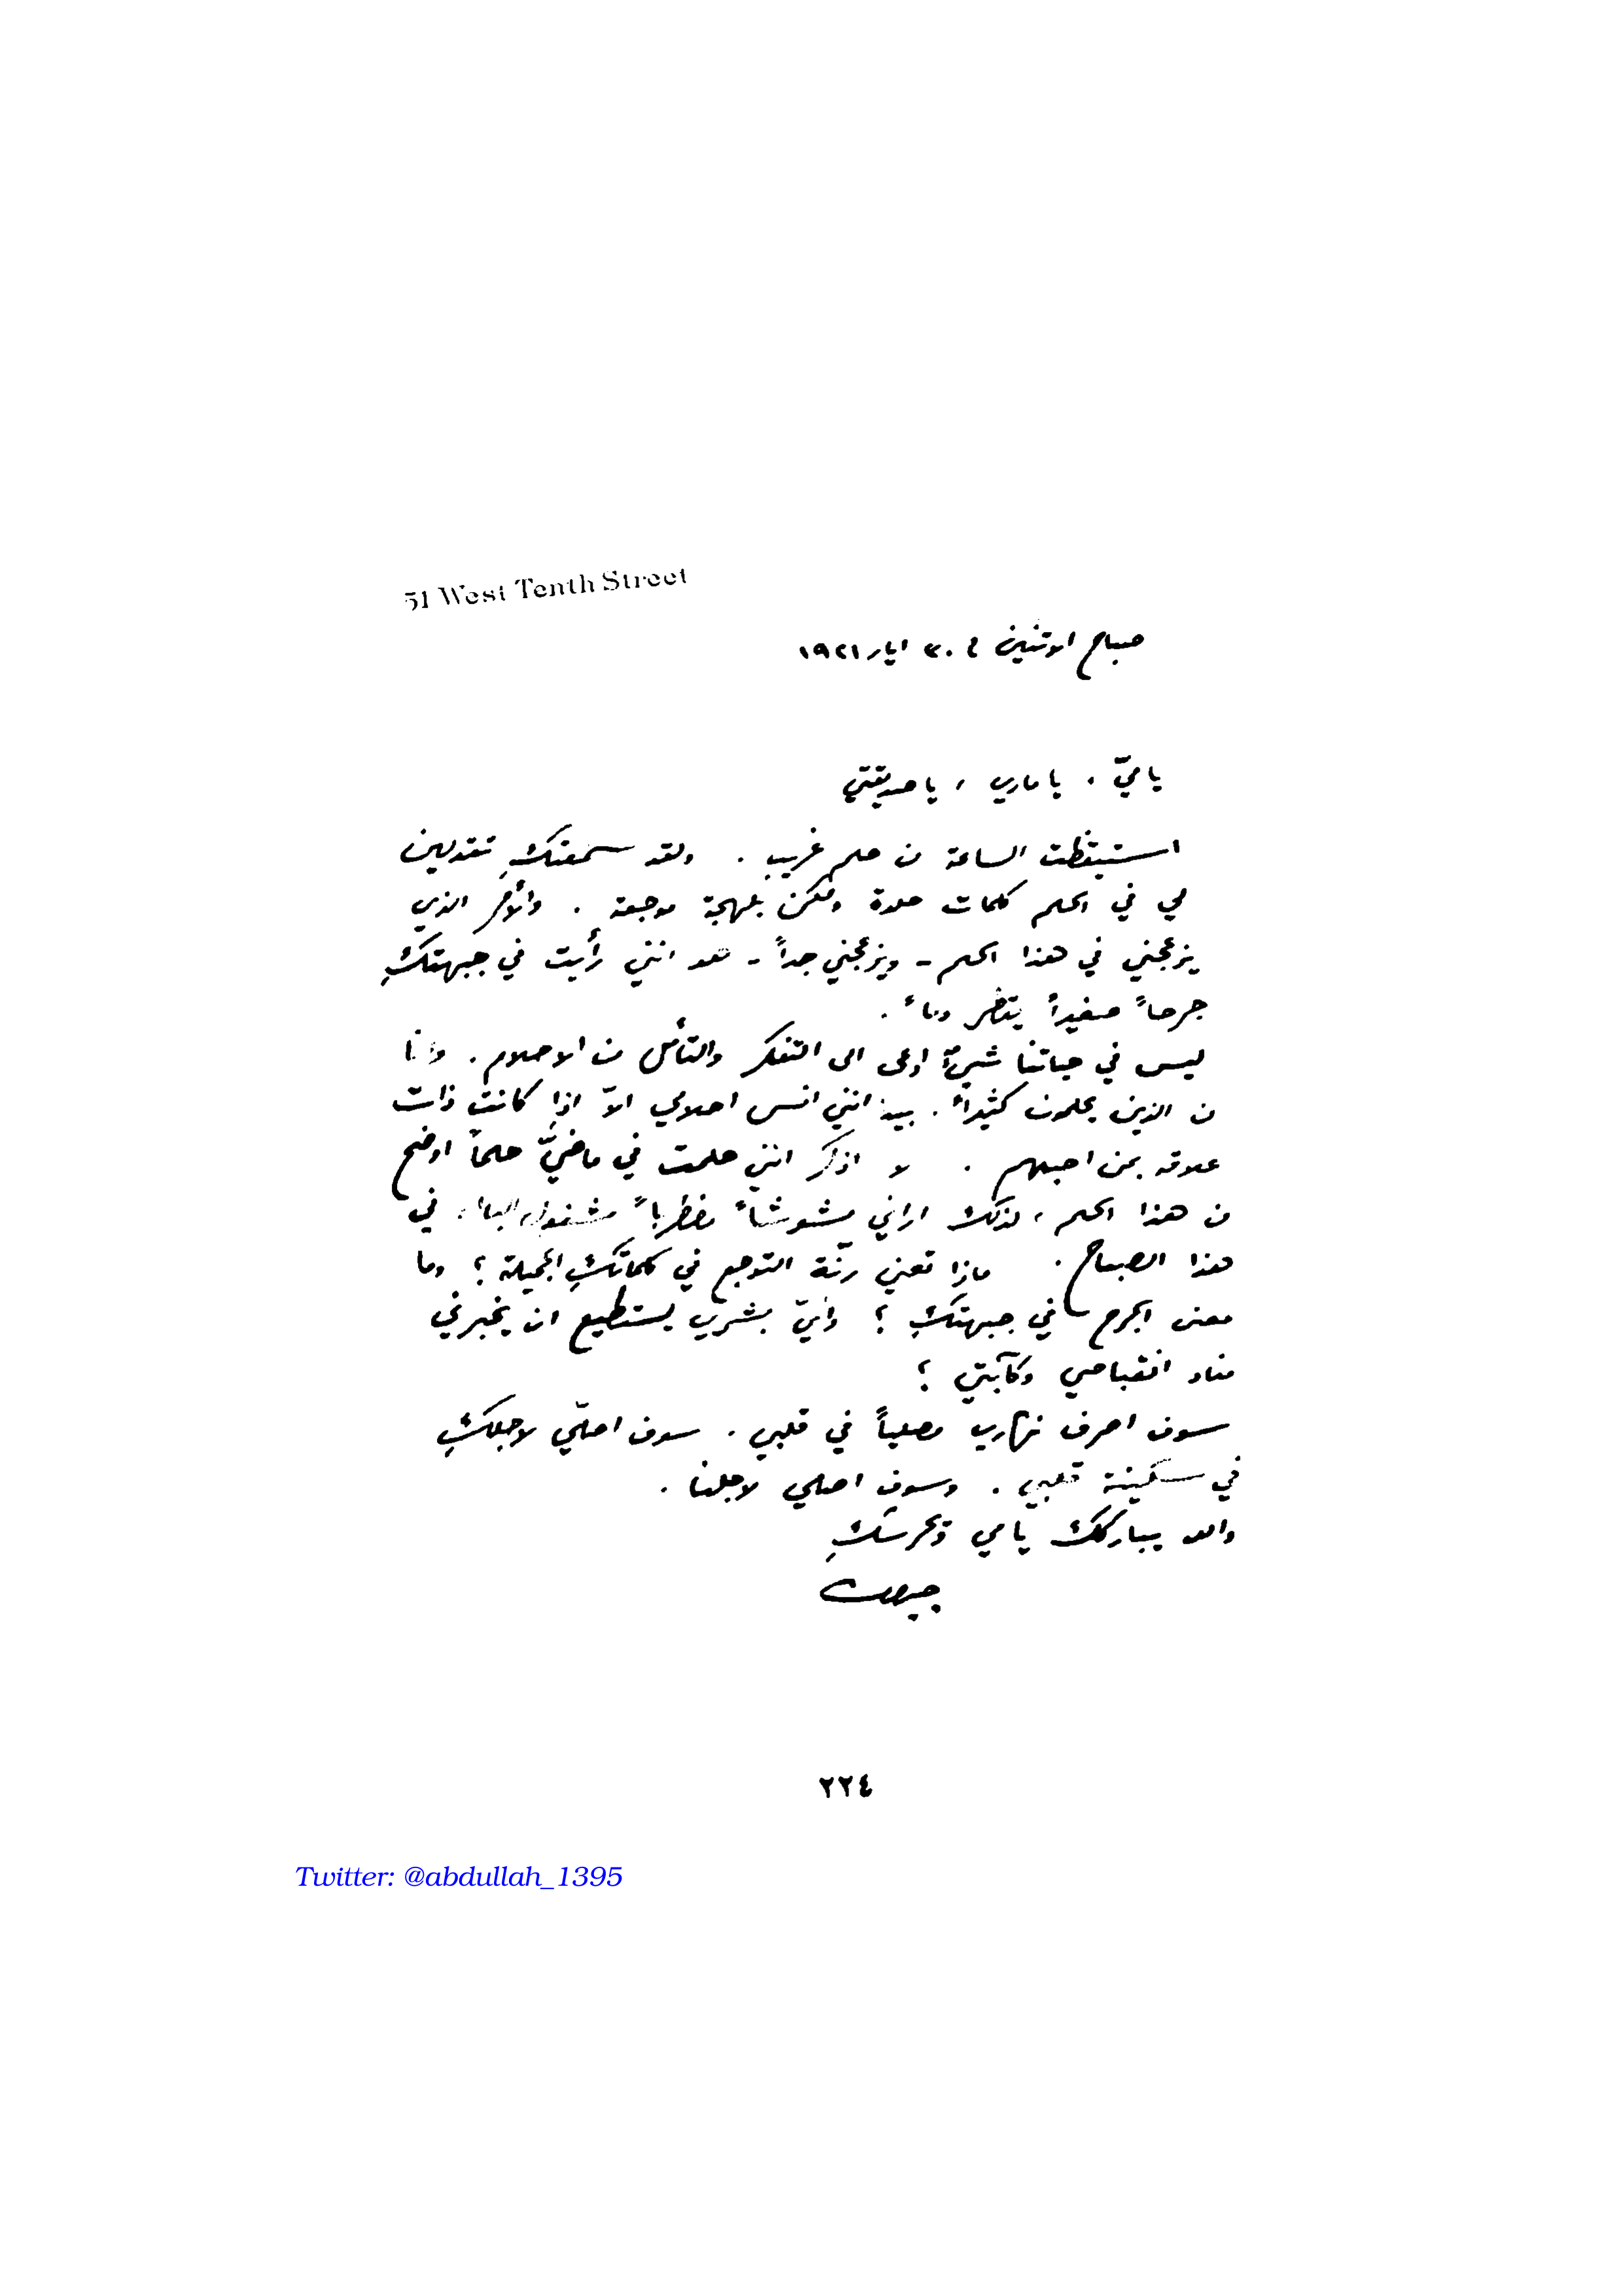 51 West Tenth Street
صباح الاثنين في ٣٠ ايار ١٩٢١
يا ميّ ، يا ماري ، يا صديقتي
استيقظت الساعة من حلم غريب . ولقد سمعتكِ تقولين
لي في الحلم كلمات حلوة ولكن بلهجة موجعة . والأمر الذي
يزعجني في هذا الحلم - ويزعجني جداً - هو انني رأيت في جبهتكِ
جرحاً صغيراً يقطر دماً .
ليس في حياتنا شيءٌ ادعى الى التفكر والتأمل من الاحلام . وأنا
من الذين يحلمون كثيراً . بيد انني انسى احلامي الاّ اذا كانت ذات
علاقة بمن احبهم . لا اذكر انني حلمت في ماضيَّ حلماً اوضح
من هذا الحلم ، لذلك اراني مشوشاً مضطرباً مشغول البال في
هذا الصباح . ماذا تعني رنّة التوجع في كلماتكِ الجميلة ؟ وما
معنى الجرح في جبهتكِ ؟ وأيّ بشري يستطيع ان يخبرني
مفاد انقباضي وكآبتي ؟
سوف اصرف نهاري مصلياً في قلبي . سوف اصلّي لاجلكِ
في سكينة قلبي . وسوف اصلي لاجلنا .
والله يباركك يا مي ويحرسكِ
جبران
٢٢٤
Twitter: @abdullah_1395